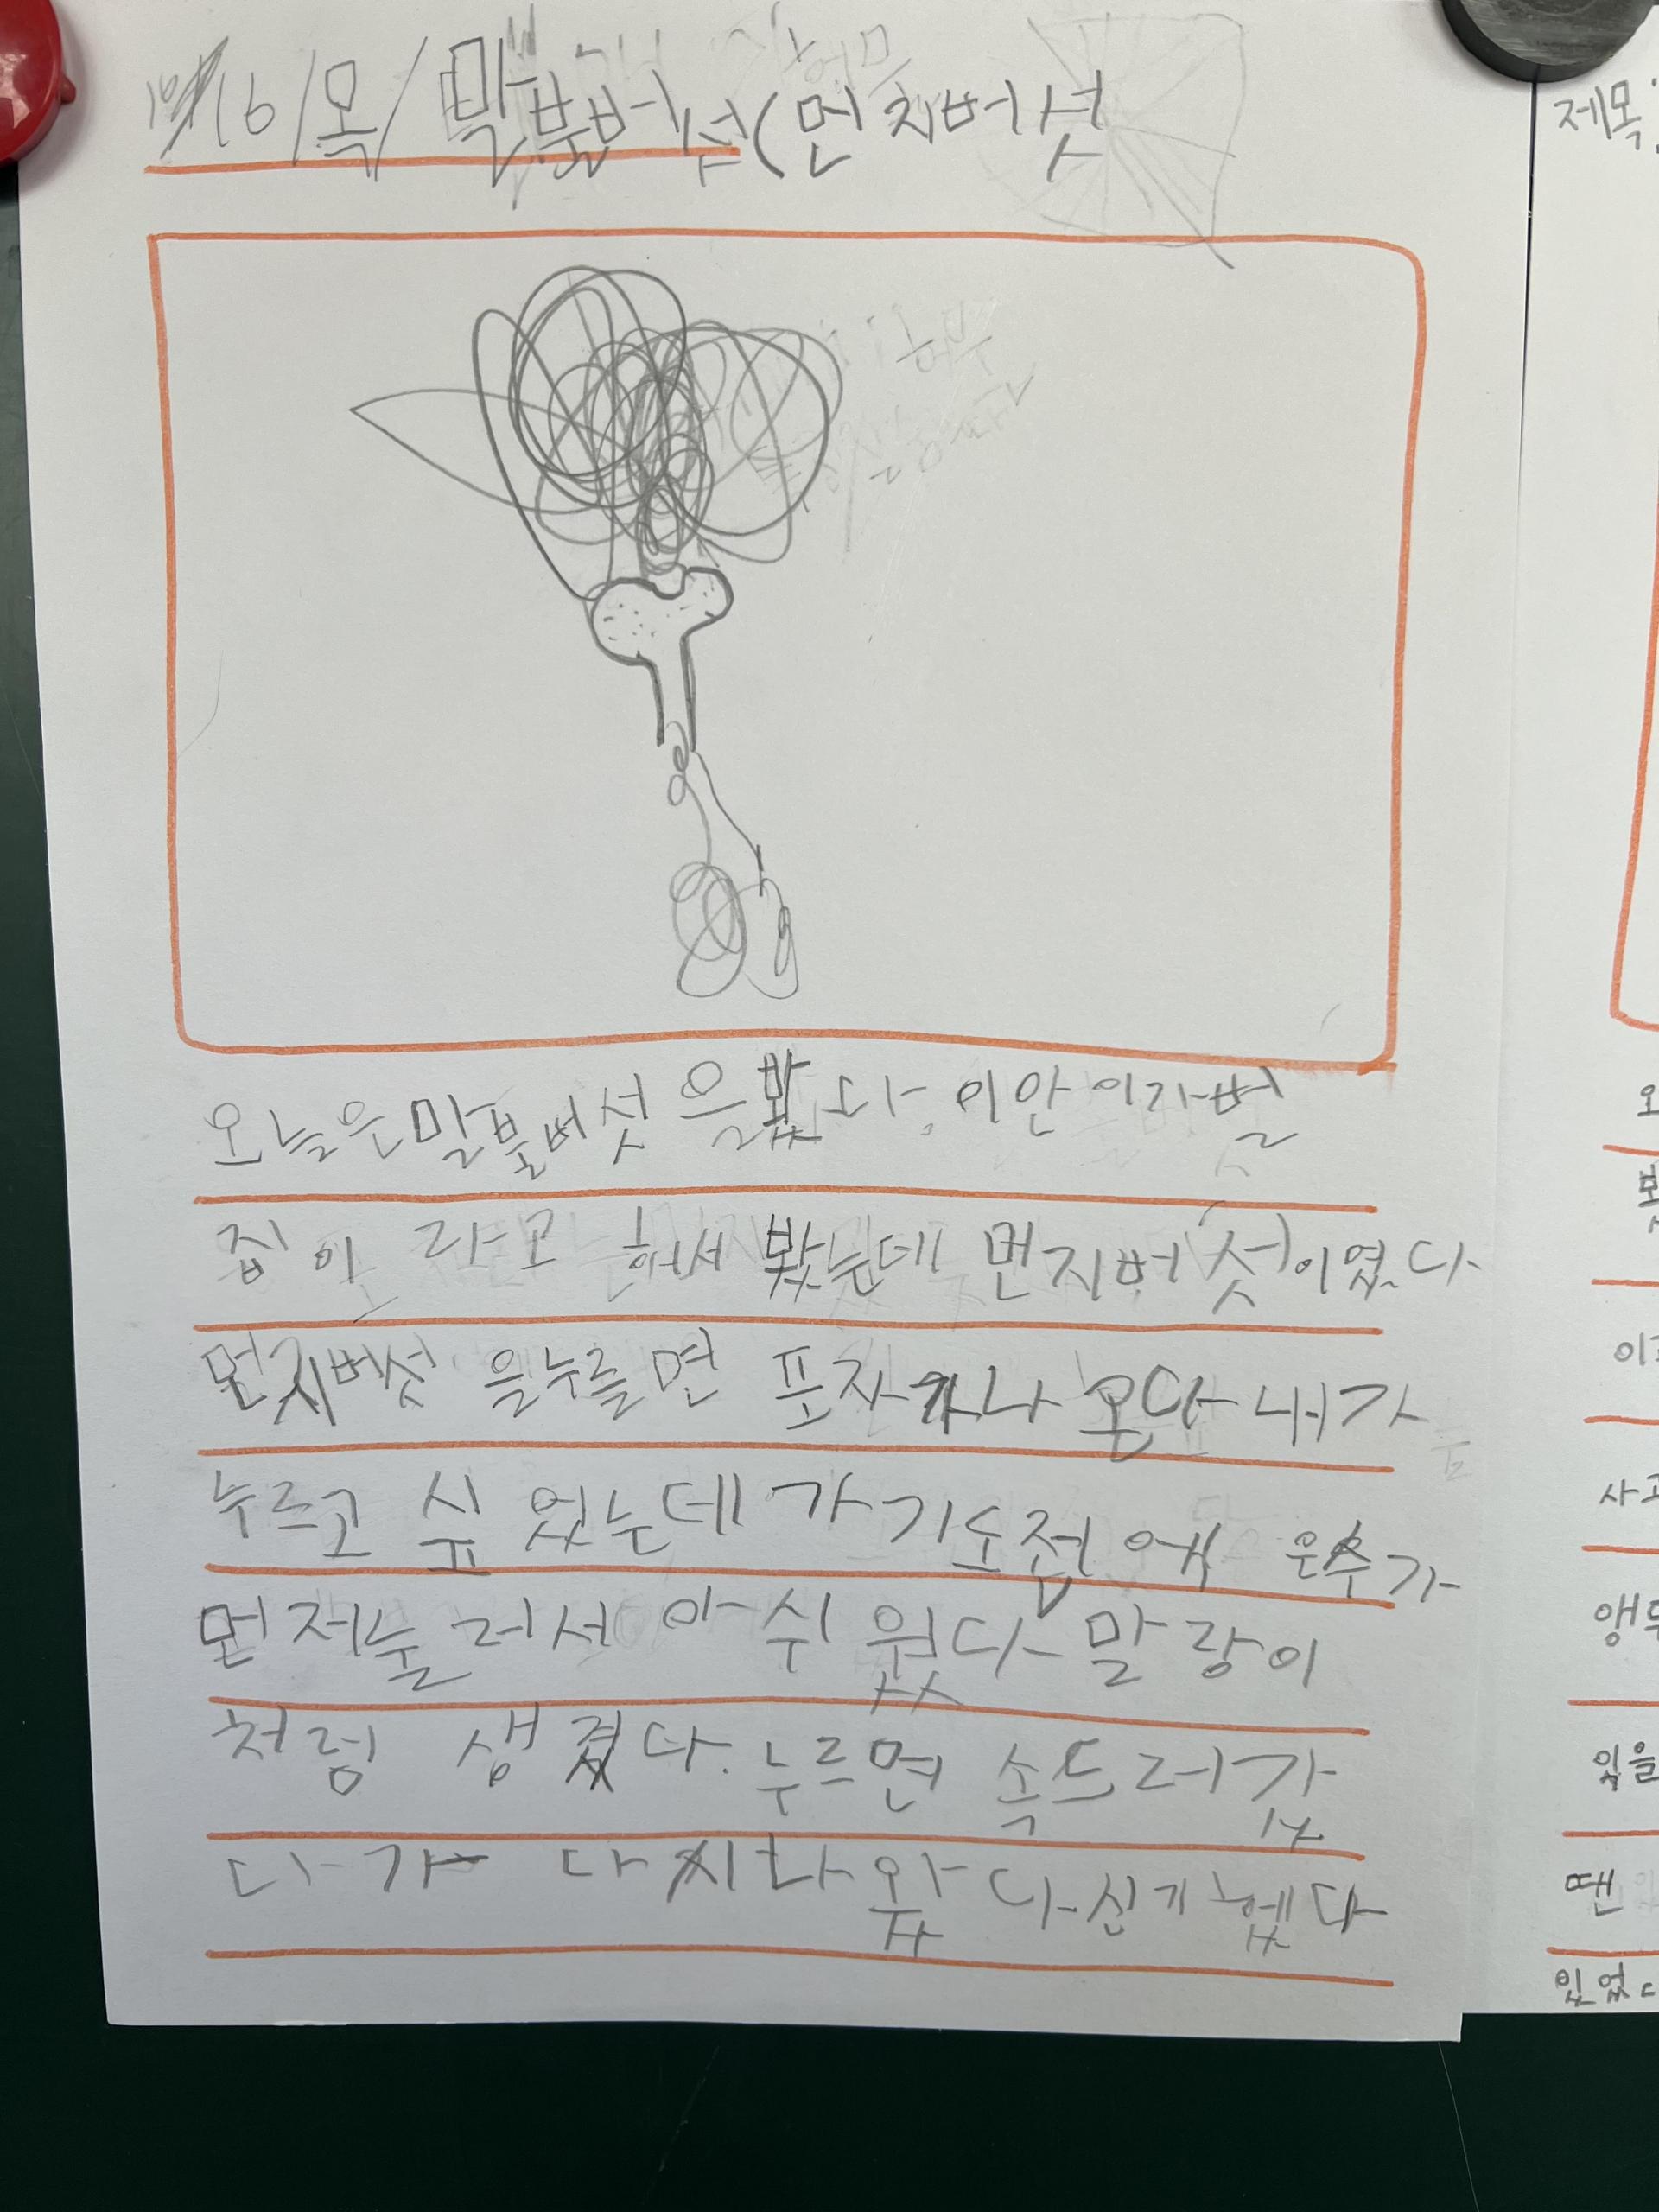 10/16/목/말불버섯(먼지버섯
오늘은 말불버섯을 봤다. 이안이가 벌
집이라고 해서 봤는데 먼지버섯이였다
먼지버섯을 누를면 포자가 나온다 내가
누르고 싶었는데 가기도 전에 은수가
먼저 눌러서 아쉬웠다 말랑이
처럼 생겼다. 누르면 속드러갔
다가 다시 나왔다 신기헸다
제목:
오
봤
사고
앵두
있을
땐
있었다